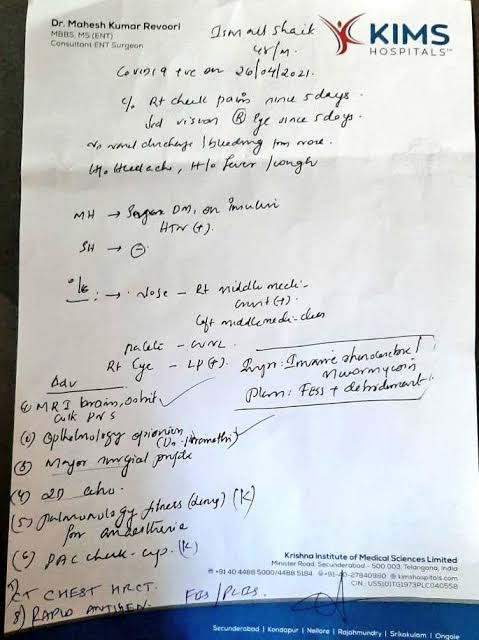 Dr. Mahesh Kumar Revoori
MBBS, MS (ENT)
Consultant ENT Surgeon
KIMS
HOSPITALS™
Ismail Shaik
48/m.
Covid19 +ve on 26/04/2021.
c/o Rt cheek pain since 5 days.
vision Ⓡ Eye since 5 days.
No nasal discharge / bleeding from nose.
H/o Headache, H/o fever / cough
MH → DM, on insulin
HTN (+).
SH → ⊖
O/E: → . Nose - Rt middle
(+).
Left middle
palate -
Rt Eye - LP (+).
Imp:
mucormycosis
Plan: FESS + debridement.
Adv
(1) MRI brain, orbit,
PNS
(2) opthalmology opinion
(3) Major surgical profile
(4) 2D echo.
(5) pulmonology fitness (K)
for anaesthesia
(6) PAC check-up. (K)
7) CT CHEST HRCT.
8) RAPID ANTIGEN
FBS / PLBS.
Krishna Institute of Medical Sciences Limited
Minister Road, Secunderabad - 500 003, Telangana, India
+91 40 4488 5000/4488 5184 +91-40-27840980 kimshospitals.com
CIN : U55101TG1973PLC040558
Secunderabad | Kondapur | Nellore | Rajahmundry | Srikakulam | Ongole